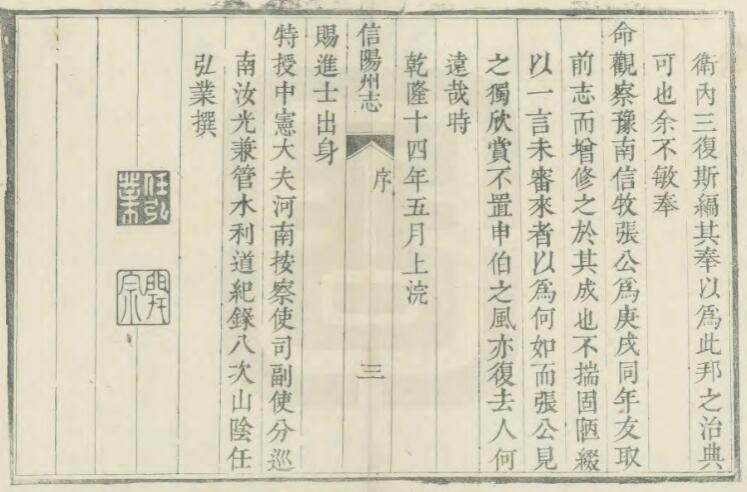 衛內三復斯編其奉以爲此邦之治典
可也余不敏奉
命觀察豫南信牧張公爲庚戌同年友取
前志而增修之於其成也不揣固陋綴
以一言未審來者以爲何如而張公見
之獨欣賞不置申伯之風亦復去人何
遠哉時
乾隆十四年五月上浣
信陽州志 序 三
賜進士出身
特授中憲大夫河南按察使司副使分巡
南汝光兼管水利道紀錄八次山陰任
弘業撰
任弘業